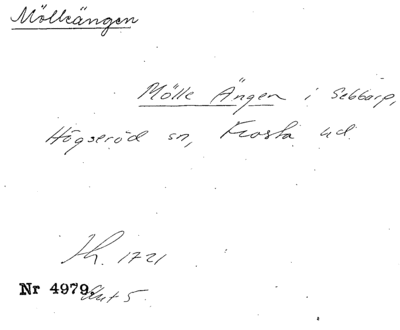 Mölleängen
Mölle Ängen i Sebbarp,
Högseröd sn, Frosta hd.
Jh. 1721
Nr 4979. Akt 5.